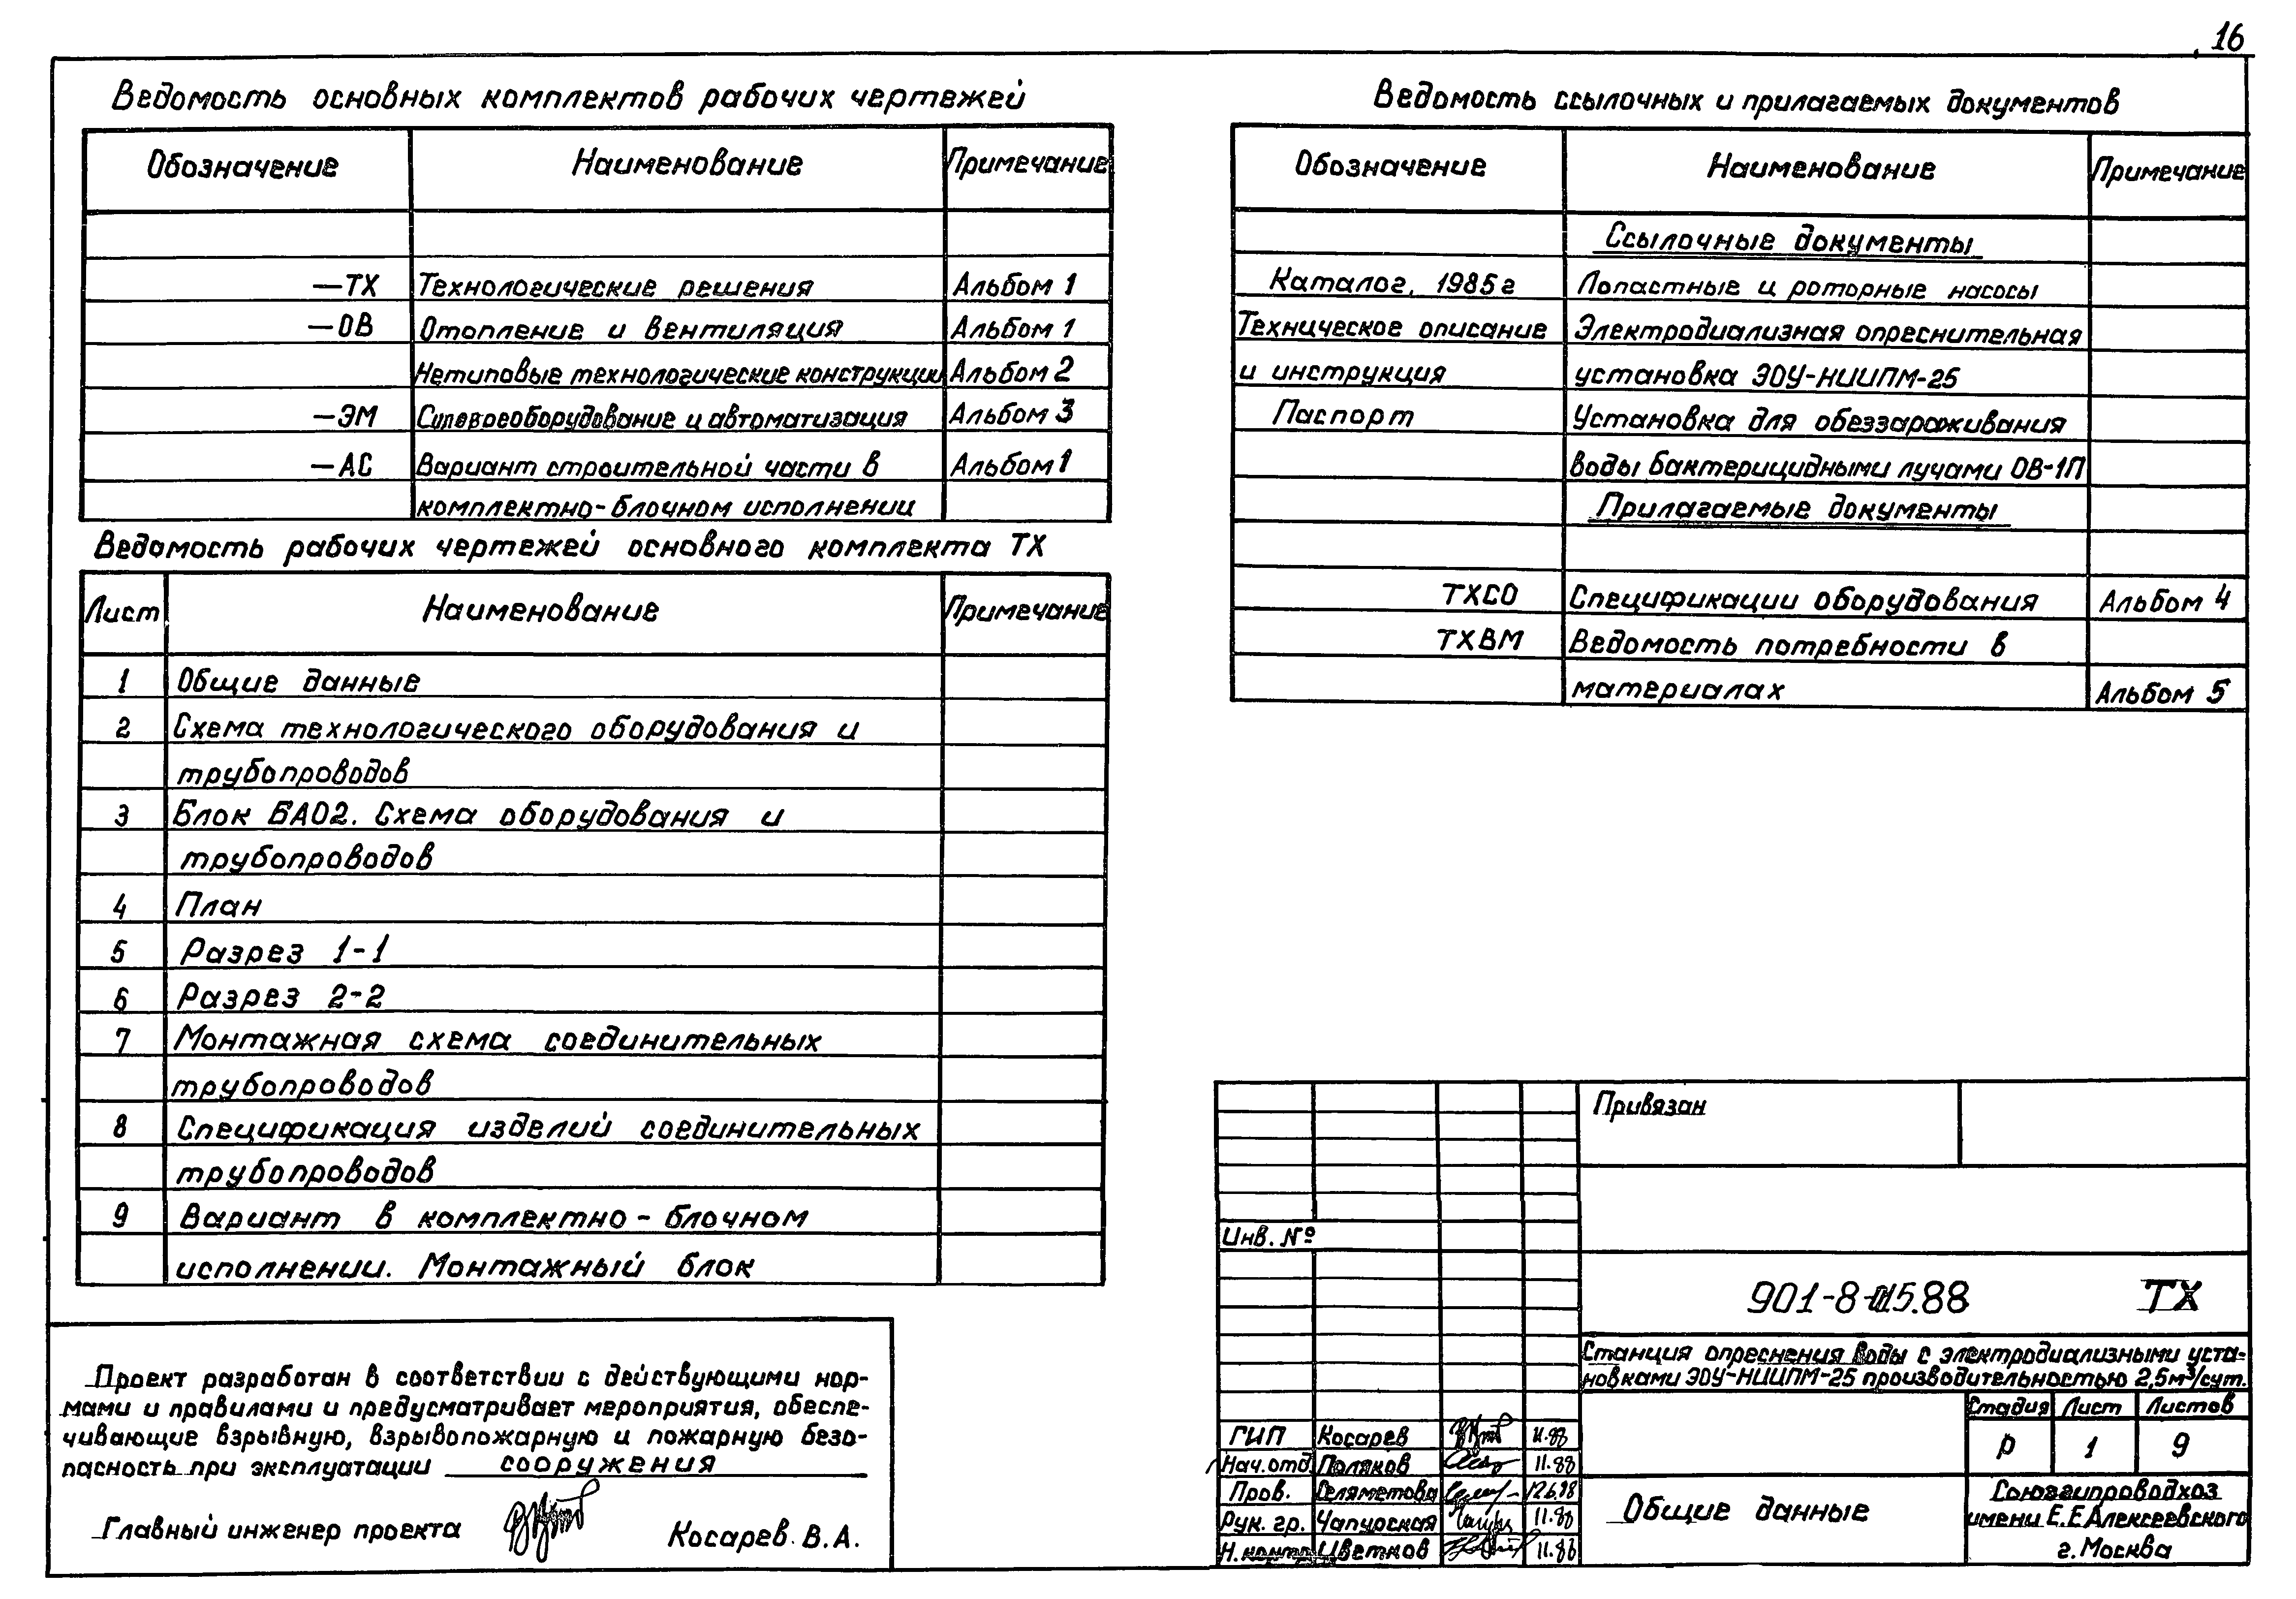 16
Ведомость основных комплектов рабочих чертежей
Обозначение Наименование Примечание
—ТХ Технологические решения Альбом 1
—ОВ Отопление и вентиляция Альбом 1
Нетиповые технологические конструкции Альбом 2
—ЭМ Силовое оборудование и автоматизация Альбом 3
—АС Вариант строительной части в Альбом 1
комплектно-блочном исполнении
Ведомость рабочих чертежей основного комплекта ТХ
Лист Наименование Примечание
1 Общие данные
2 Схема технологического оборудования и
трубопроводов
3 Блок БА02. Схема оборудования и
трубопроводов
4 План
5 Разрез 1-1
6 Разрез 2-2
7 Монтажная схема соединительных
трубопроводов
8 Спецификация изделий соединительных
трубопроводов
9 Вариант в комплектно-блочном
исполнении. Монтажный блок
Проект разработан в соответствии с действующими нор-
мами и правилами и предусматривает мероприятия, обеспе-
чивающие взрывную, взрывопожарную и пожарную безо-
пасность при эксплуатации сооружения
Главный инженер проекта Косарев В.А.
Ведомость ссылочных и прилагаемых документов
Обозначение Наименование Примечание
Ссылочные документы
Каталог, 1985г Лопастные и роторные насосы
Техническое описание Электродиализная опреснительная
и инструкция установка ЭОУ-НИИПМ-25
Паспорт Установка для обеззараживания
воды бактерицидными лучами ОВ-1П
Прилагаемые документы
ТХСО Спецификации оборудования Альбом 4
ТХВМ Ведомость потребности в
материалах Альбом 5
Привязан
Инв. №
901-8- 15.88 ТХ
Станция опреснения воды с электродиализными уста-
новками ЭОУ-НИИПМ-25 производительностью 2,5м³/сут.
Стадия Лист Листов
Р 1 9
ГИП Косарев 11.88
Нач.отд. Поляков 11.88
Пров. Селяметова
Рук. гр. Чапурская 11.88
Н. контр. Цветков 11.88
Общие данные
Союзгипроводхоз
имени Е.Е.Алексеевского
г. Москва